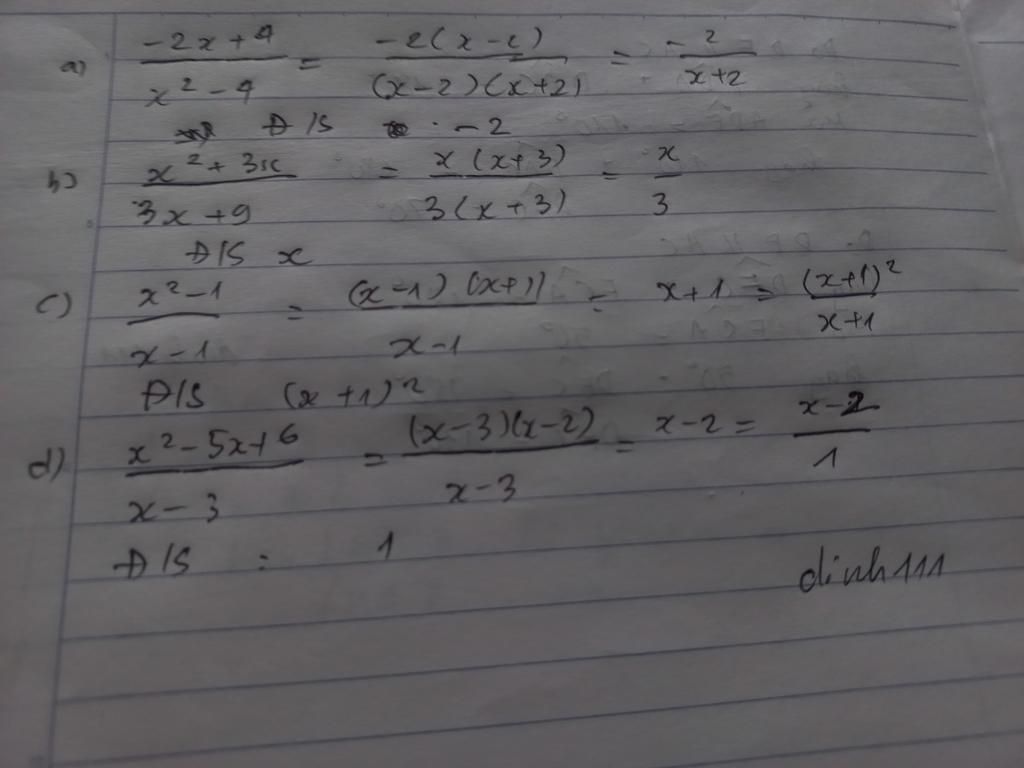 a) (-2x+4)/(x²-4) = (-2(x-2))/((x-2)(x+2)) = -2/(x+2)
Đ/S -2
b) (x²+3x)/(3x+9) = (x(x+3))/(3(x+3)) = x/3
Đ/S x
c) (x²-1)/(x-1) = ((x-1)(x+1))/(x-1) = x+1 = (x+1)²/(x+1)
Đ/S (x+1)²
d) (x²-5x+6)/(x-3) = ((x-3)(x-2))/(x-3) = x-2 = (x-2)/1
Đ/S : 1
dinh111